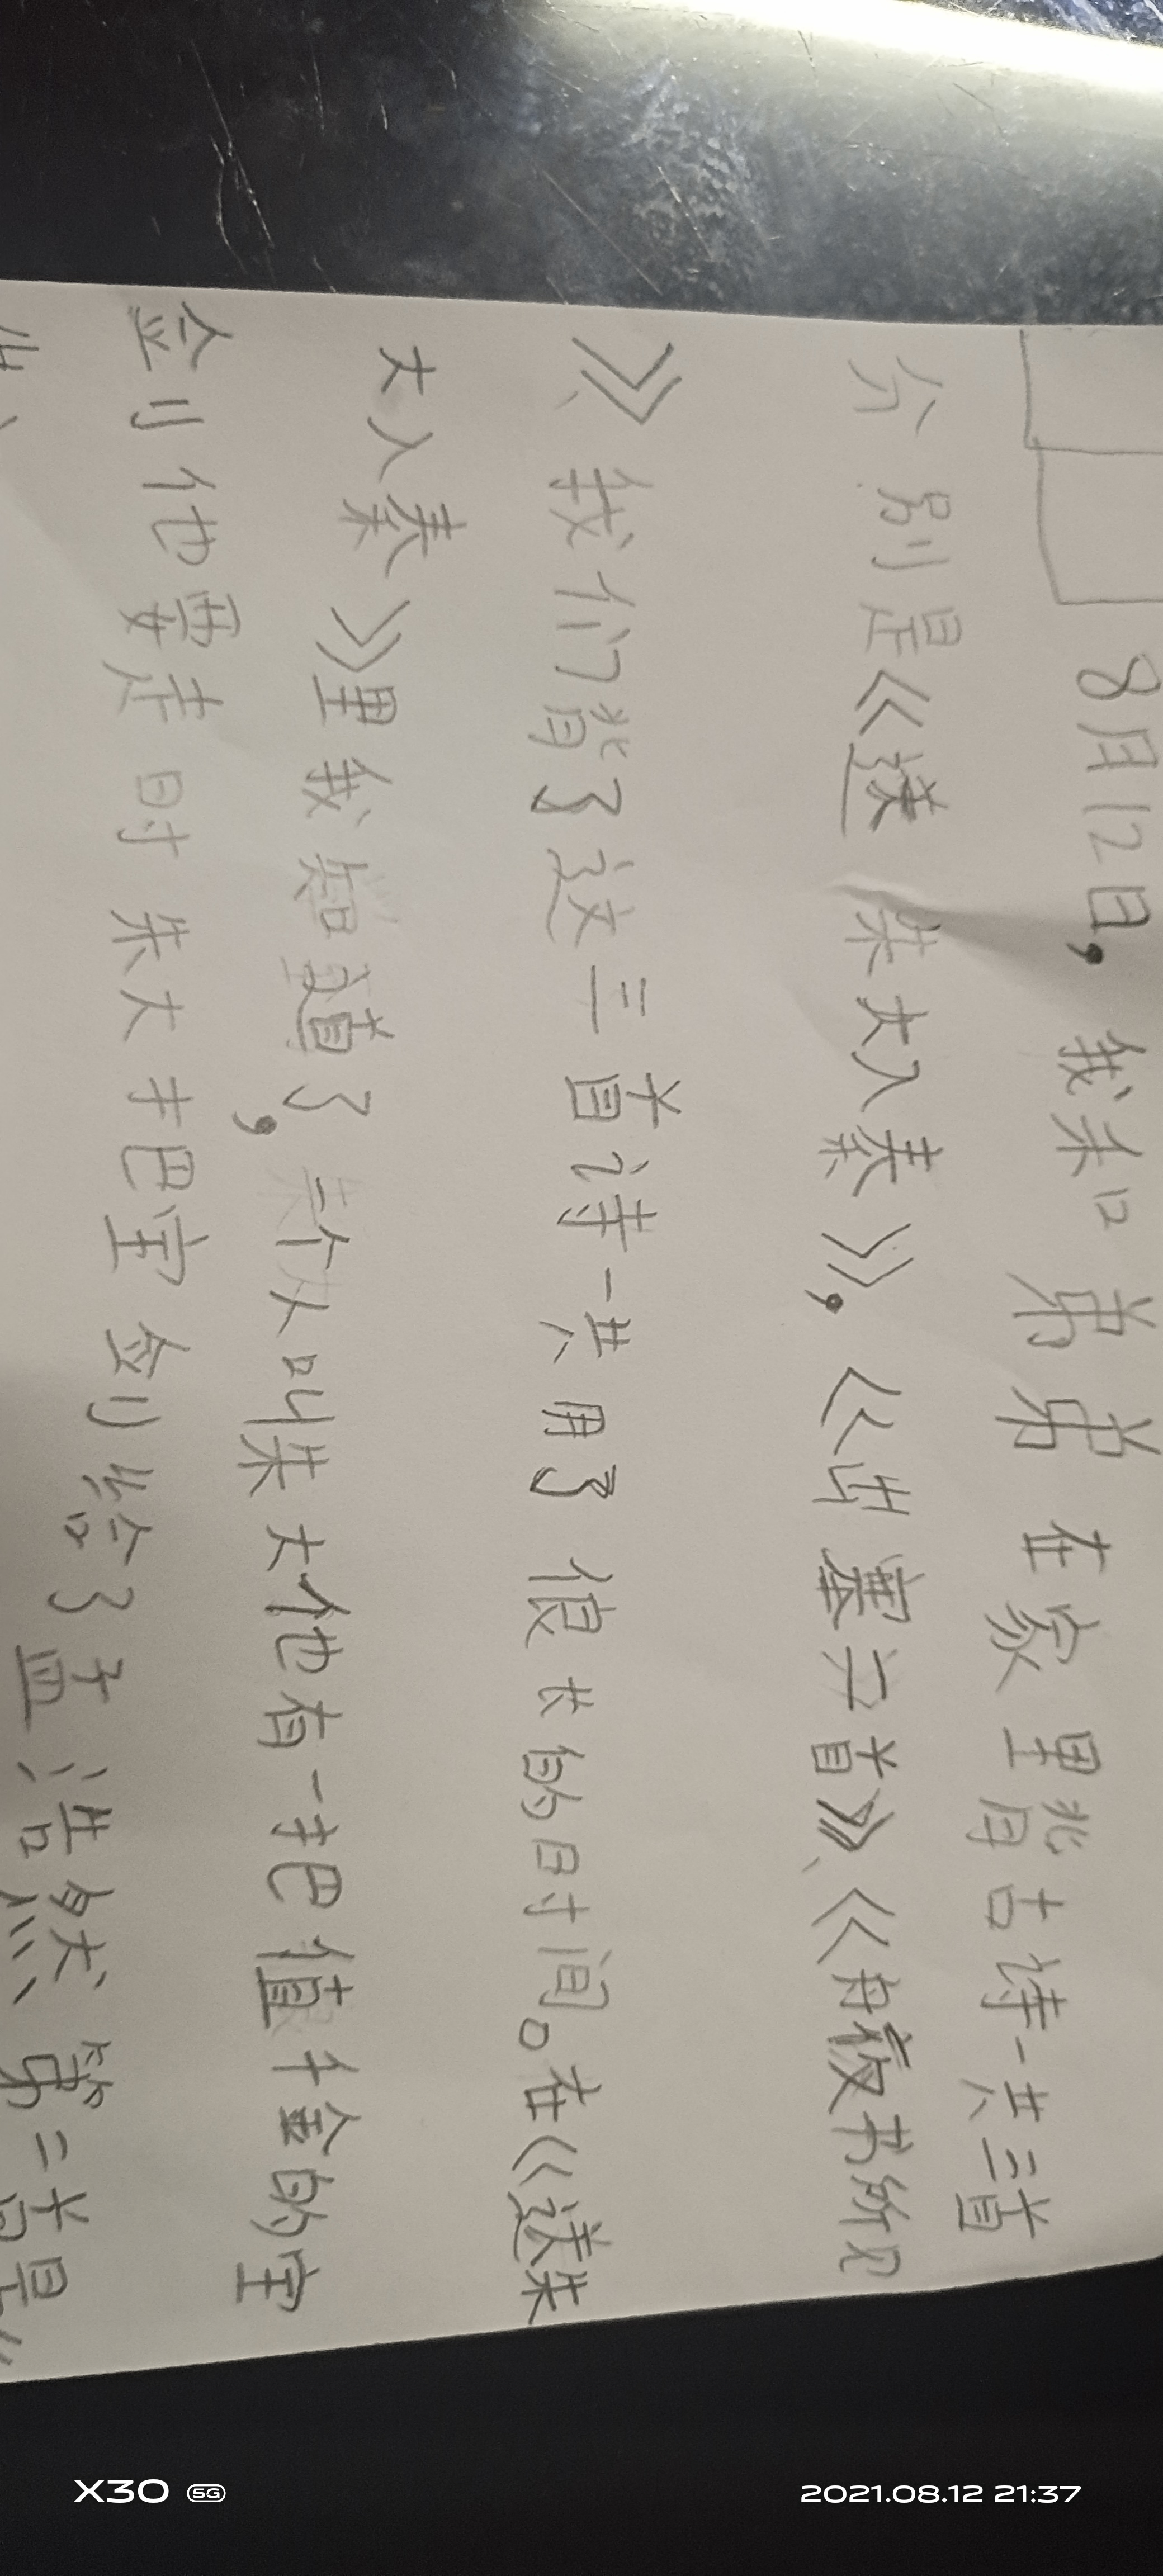 8月12日，我和弟弟在家里背古诗一共三首
分别是《送朱大入秦》，《出塞二首》、《舟夜书所见
》、我们背了这三首诗一共用了很长的时间。在《送朱
大入秦》里我知道了，一个人叫朱大他有一把值千金的宝
剑他要走时朱大把宝剑给了孟浩然第二首是《
X30 5G
2021.08.12 21:37